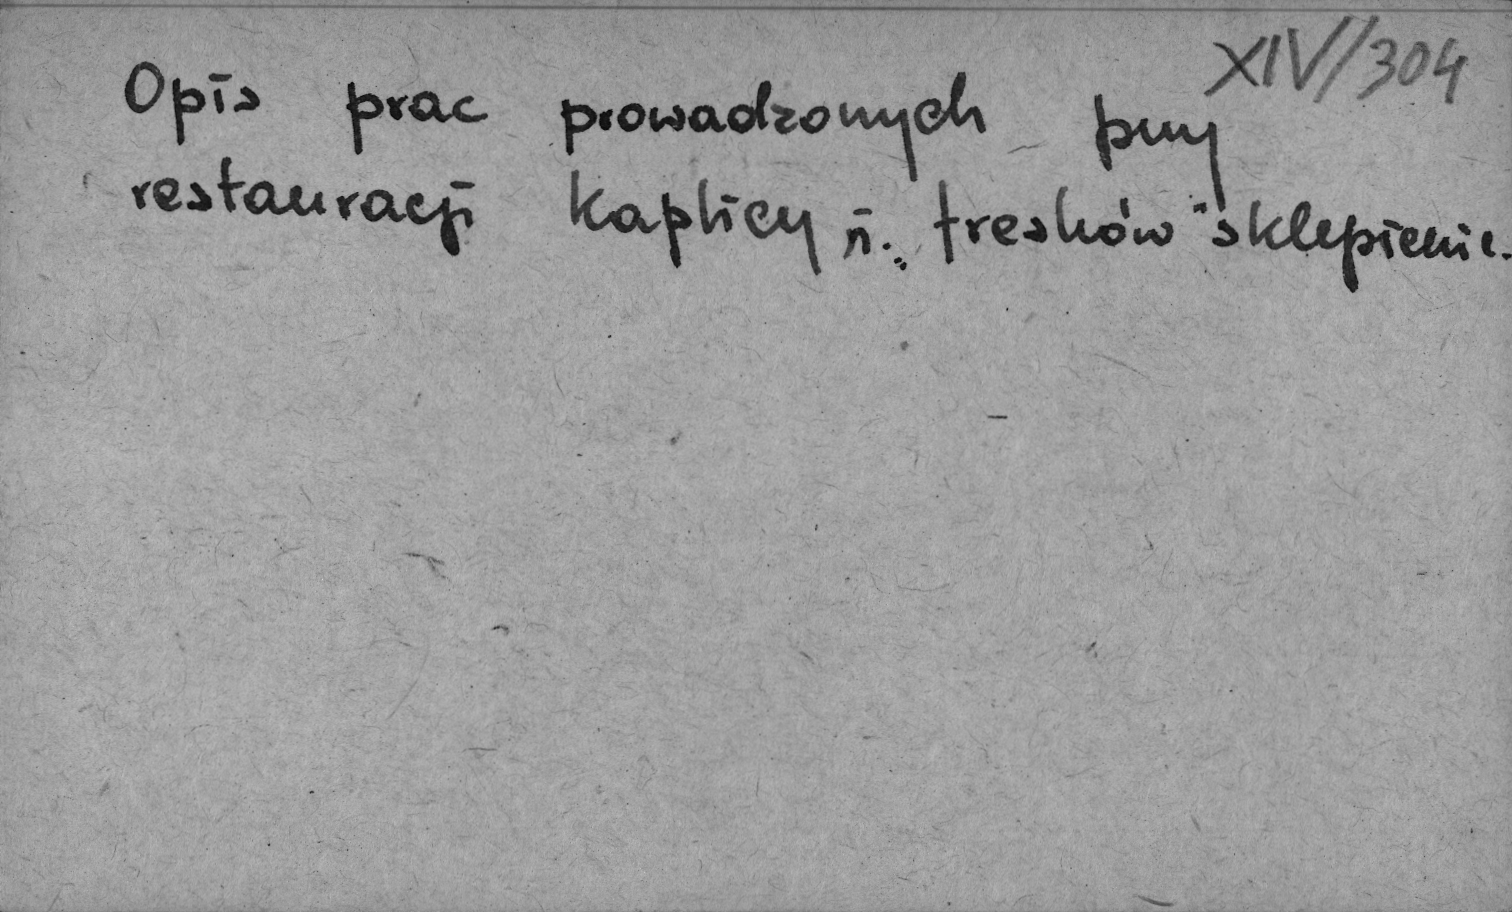 XIV/304
Opis prac prowadzonych przy
restauracji kaplicy n. „fresków" sklepienie.